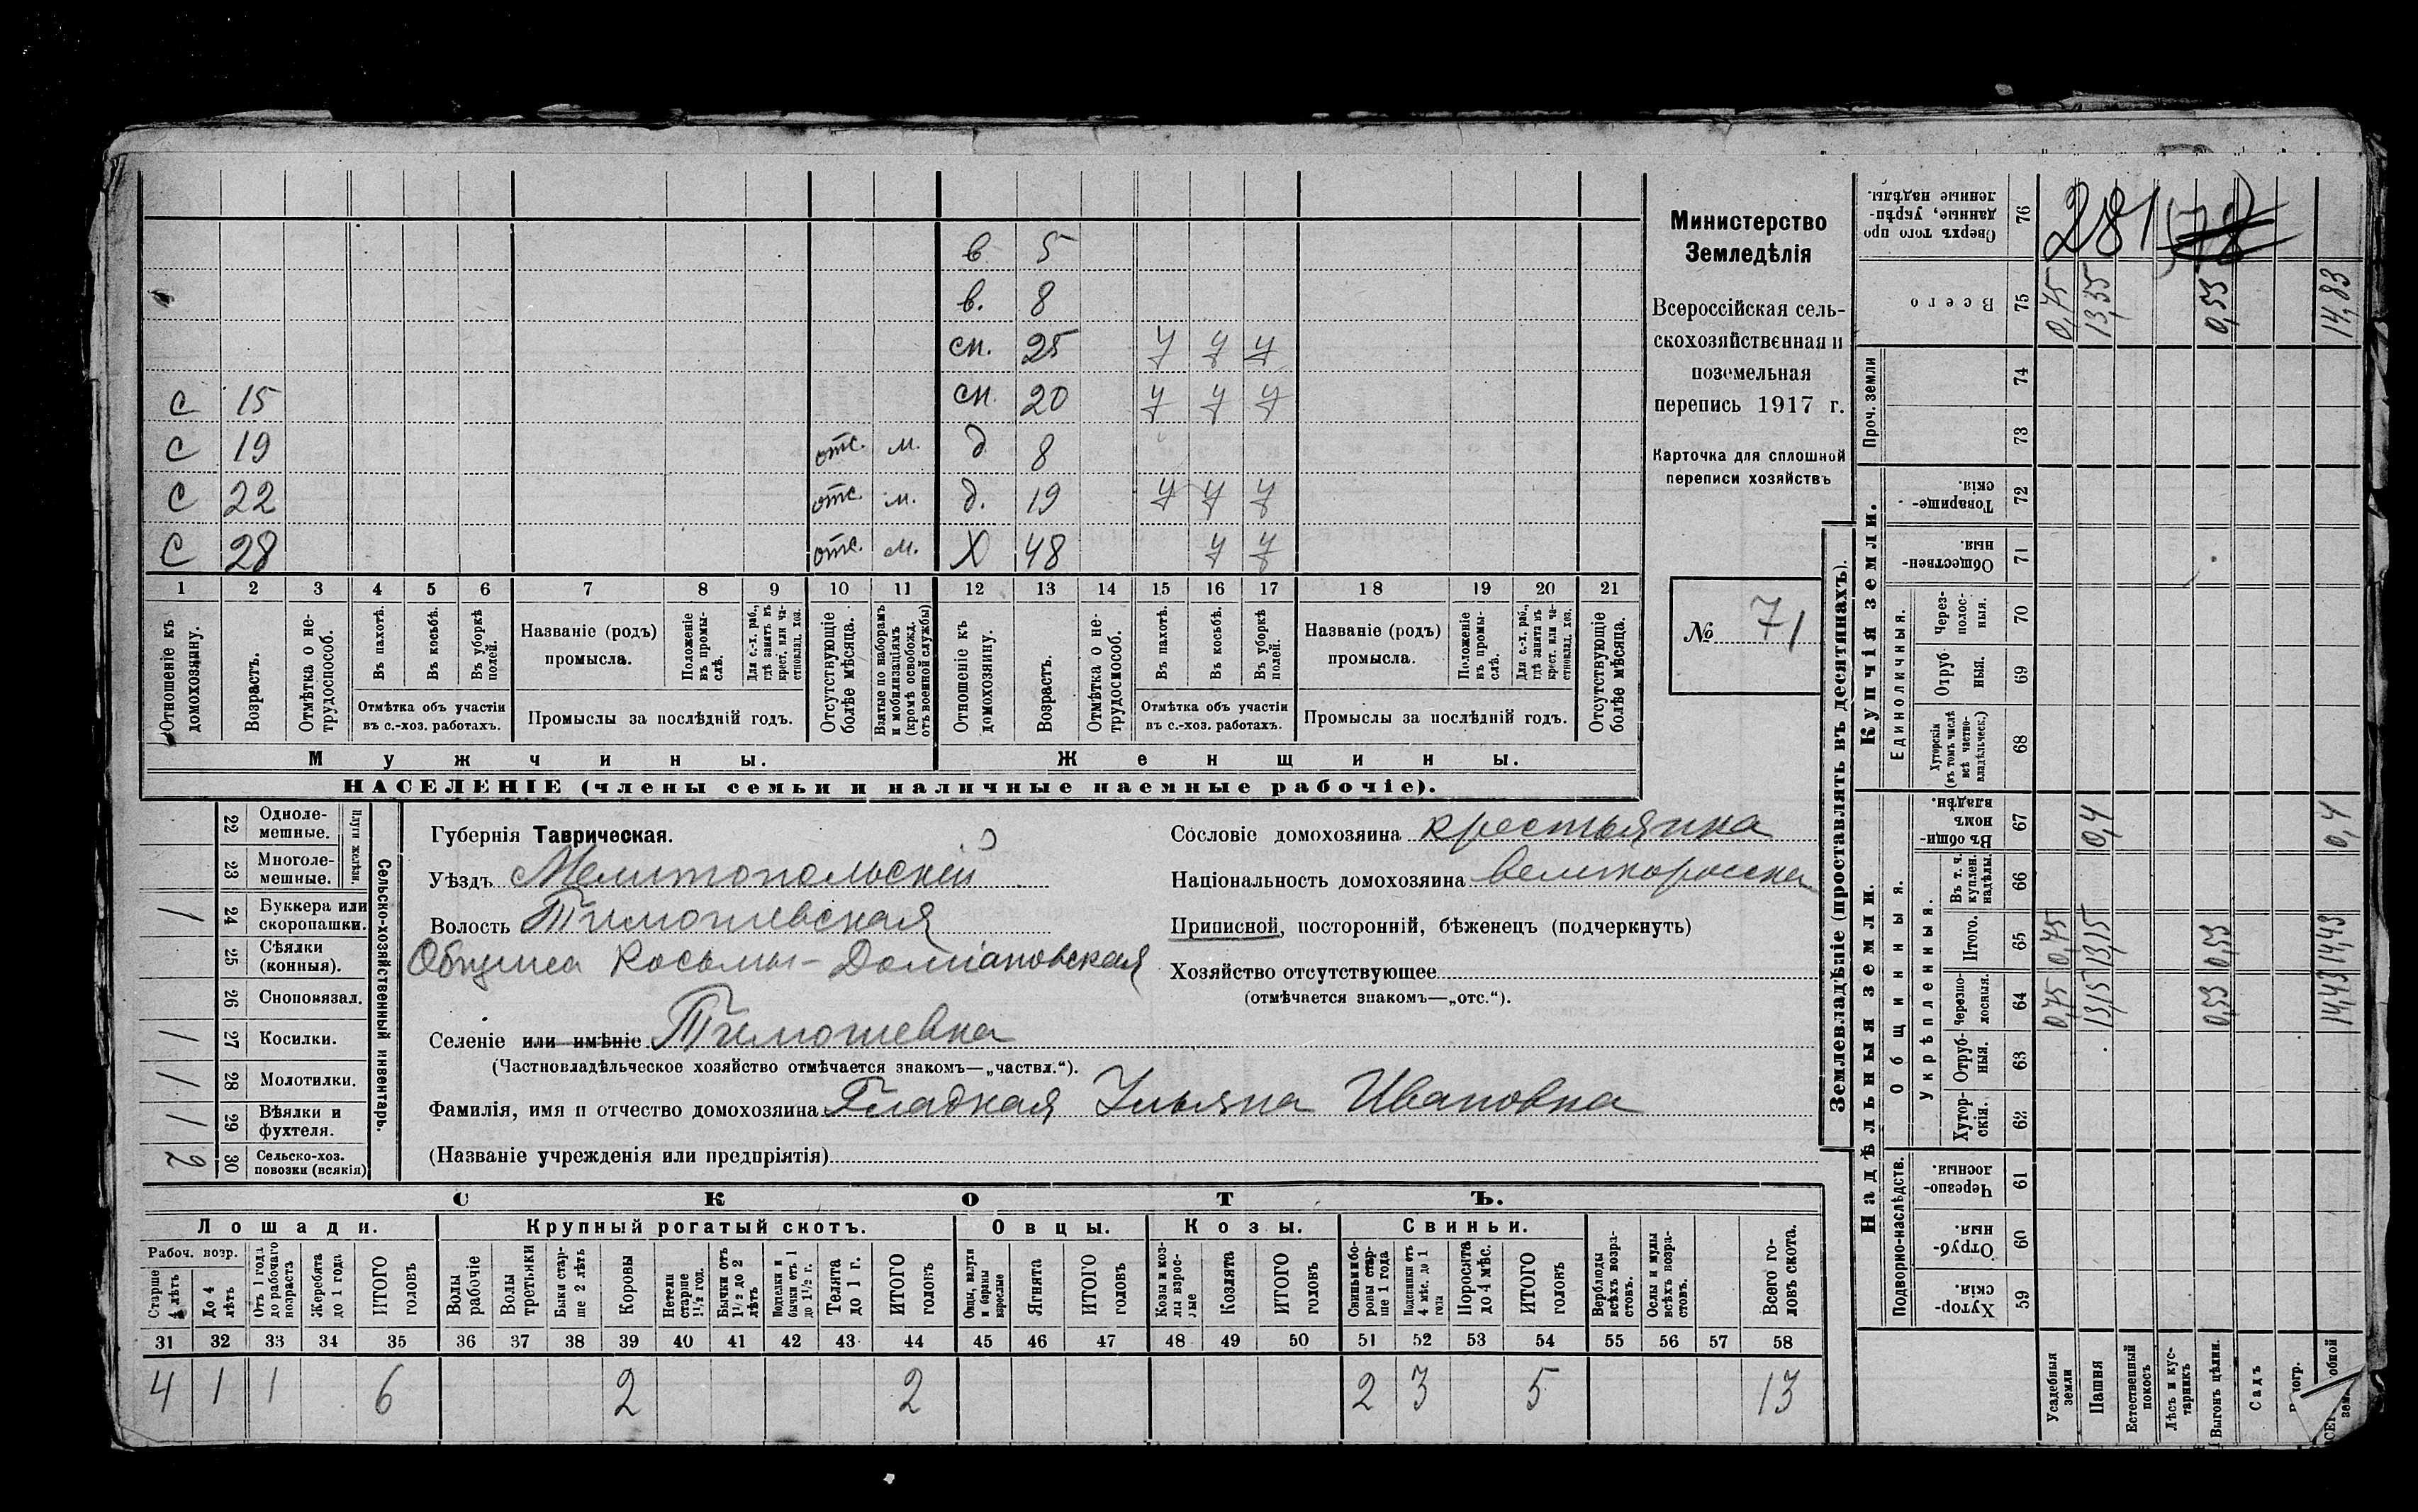 в 5
в. 8
сн. 25 у у у
С 15 сн. 20 у у у
С 19 отс. м. д 8
С 22 отс. м. д. 19 у у у
С 28 отс. м. Х 48 у у
1 2 3 4 5 6 7 8 9 10 11 12 13 14 15 16 17 18 19 20 21
Отношеніе къ домохозяину.
Возрастъ.
Отмѣтка о не-трудоспособ.
Въ пахотѣ.
Въ косьбѣ.
Въ уборкѣ полей.
Отмѣтка объ участіи
въ с.-хоз. работахъ.
Названіе (родъ)
промысла.
Положеніе въ промы-слѣ.
Для с.-х. раб., гдѣ занятъ въ крест. или ча-стновлад. хоз.
Промыслы за послѣдній годъ.
Отсутствующіе болѣе мѣсяца.
Взятые по наборамъ и мобилизаціямъ (кромѣ освобожд. отъ военной службы)
Отношеніе къ домохозяину.
Возрастъ.
Отмѣтка о не-трудоспособ.
Въ пахотѣ.
Въ косьбѣ.
Въ уборкѣ полей.
Отмѣтка объ участіи
въ с.-хоз. работахъ.
Названіе (родъ)
промысла.
Положеніе въ промы-слѣ.
Для с.-х. раб., гдѣ занятъ въ крест. или ча-стновлад. хоз.
Промыслы за послѣдній годъ.
Отсутствующіе болѣе мѣсяца.
Мужчины. Женщины.
НАСЕЛЕНІЕ (члены семьи и наличные наемные рабочіе).
Министерство
Земледѣлія
Всероссійская сель-
скохозяйственная и
поземельная
перепись 1917 г.
Карточка для сплошной
переписи хозяйствъ
№ 71
Сельско-хозяйственный инвентарь.
Плуги желѣзн.
22 Одноле-мешные.
23 Многоле-мешные.
1 24 Буккера или скоропашки.
25 Сѣялки (конныя).
26 Сноповязал.
1 27 Косилки.
1 28 Молотилки.
1 29 Вѣялки и фухтеля.
2 30 Сельско-хоз. повозки (всякія)
Губернія Таврическая.
Уѣздъ Мелитопольскій
Волость Тимошевская
Община Косьмы-Даміановская
Селеніе или имѣніе Тимошевка
(Частновладѣльческое хозяйство отмѣчается знакомъ—„частвл.“).
Фамилія, имя и отчество домохозяина Гладкая Ульяна Ивановна
(Названіе учрежденія или предпріятія)
Сословіе домохозяина крестьянка
Національность домохозяина великоросска
Приписной, посторонній, бѣженецъ (подчеркнуть)
Хозяйство отсутствующее
(отмѣчается знакомъ—„отс.“).
СКОТЪ.
Лошади. Крупный рогатый скотъ. Овцы. Козы. Свиньи.
Рабоч. возр.
Старше 4 лѣтъ
До 4 лѣтъ
Отъ 1 года до рабочаго возраста
Жеребята до 1 года
ИТОГО головъ
Волы рабочіе
Волы третьяки
Быки стар-ше 2 лѣтъ
Коровы
Нетели старше 1½ год.
Бычки отъ 1½ до 2 лѣтъ
Подтелки и бычки отъ 1 до 1½ г.
Телята до 1 г.
ИТОГО головъ
Овцы, валухи и бараны взрослые
Ягнята
ИТОГО головъ
Козы и коз-лы взрос-лые
Козлята
ИТОГО головъ
Свиньи и бо-ровы стар-ше 1 года
Подсвинки отъ 4 мѣс. до 1 года
Поросята до 4 мѣс.
ИТОГО головъ
Верблюды всѣхъ возра-стовъ.
Ослы и мулы всѣхъ возра-стовъ.
Всего го-ловъ скота.
31 32 33 34 35 36 37 38 39 40 41 42 43 44 45 46 47 48 49 50 51 52 53 54 55 56 57 58
4 1 1 6 2 2 2 3 5 13
Землевладѣніе (проставлять въ десятинахъ).
Купчія земли.
Надѣльныя земли.
Сверхъ того про-данные, укрѣп-ленные надѣлы. 76 281
Всего 75 0,75 13,35 0,53 14,83
Проч. земли
74
73
Товарище-скія. 72
Обществен-ныя. 71
Единоличныя.
Через-полос-ныя. 70
Отруб-ныя. 69
Хуторскія (въ томъ числѣ всѣ частно-владѣльческ.) 68
Общинныя.
Въ общи-номъ владѣн. 67 0,4 0,4
Укрѣпленныя.
Въ т. ч. куплен. надѣлы. 66
Итого. 65 0,75 13,15 0,53 14,43
Черезпо-лосныя. 64 0,75 13,15 0,53 14,43
Отруб-ныя. 63
Хутор-скія. 62
Подворно-наслѣдств.
Черезпо-лосныя. 61
Отруб-ныя. 60
Хутор-скія. 59
Усадебныя земли
Пашня
Естественный покосъ
Лѣсъ и кус-тарникъ
Выгонъ цѣлин.
Садъ